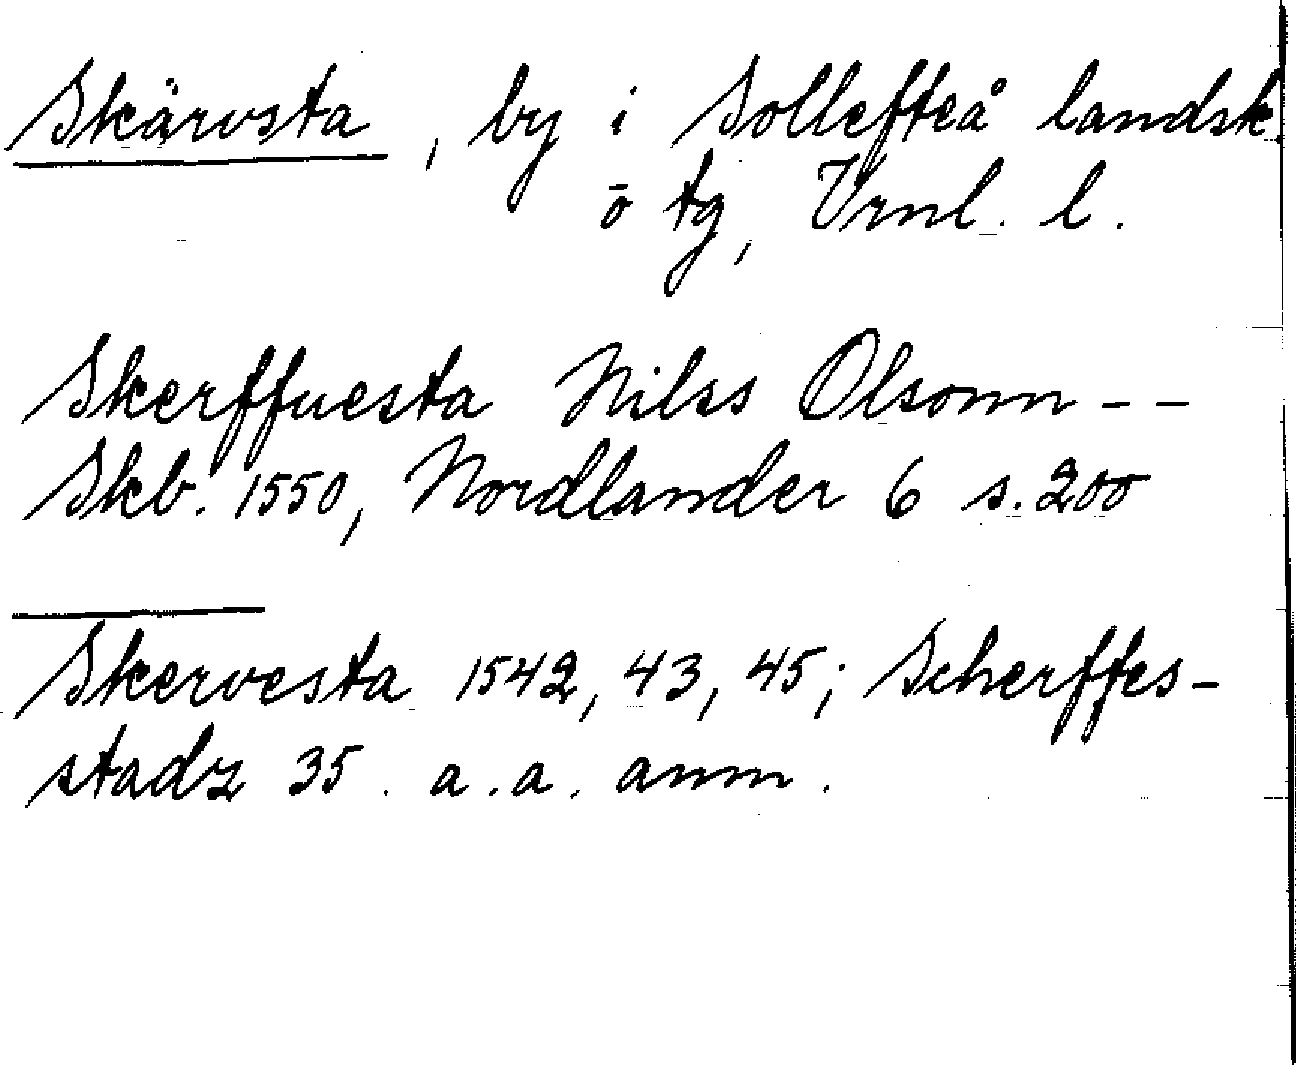 Skärvsta, by i Sollefteå landsk.
o tg, Vrnl. l.
Skerffuesta Nilss Olsonn - -
Skb. 1550, Nordlander 6 s. 200
Skervesta 1542, 43, 45; Scherffes-
stadz 35. a.a. anm.